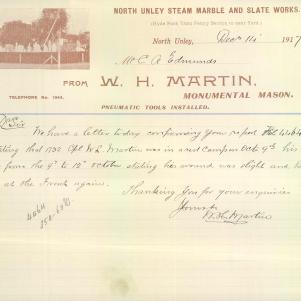 NORTH UNLEY STEAM MARBLE AND SLATE WORKS.
(Hyde Park Tram Penny Section, to near Yard.)
North Unley, Decr 14 1917
Mr E A Edmunds
TELEPHONE No. 1943.
FROM W. H. MARTIN,
MONUMENTAL MASON.
PNEUMATIC TOOLS INSTALLED.
Dear Sir
We have a letter today confirming your report
stating that 1792 Cpl W L Martin was in a rest camp on Octr 9th his
from the 9th to 12th October stating his wound was slight and
at the Front again.
Thanking You for your enquiries
Yours tr
W H Martin